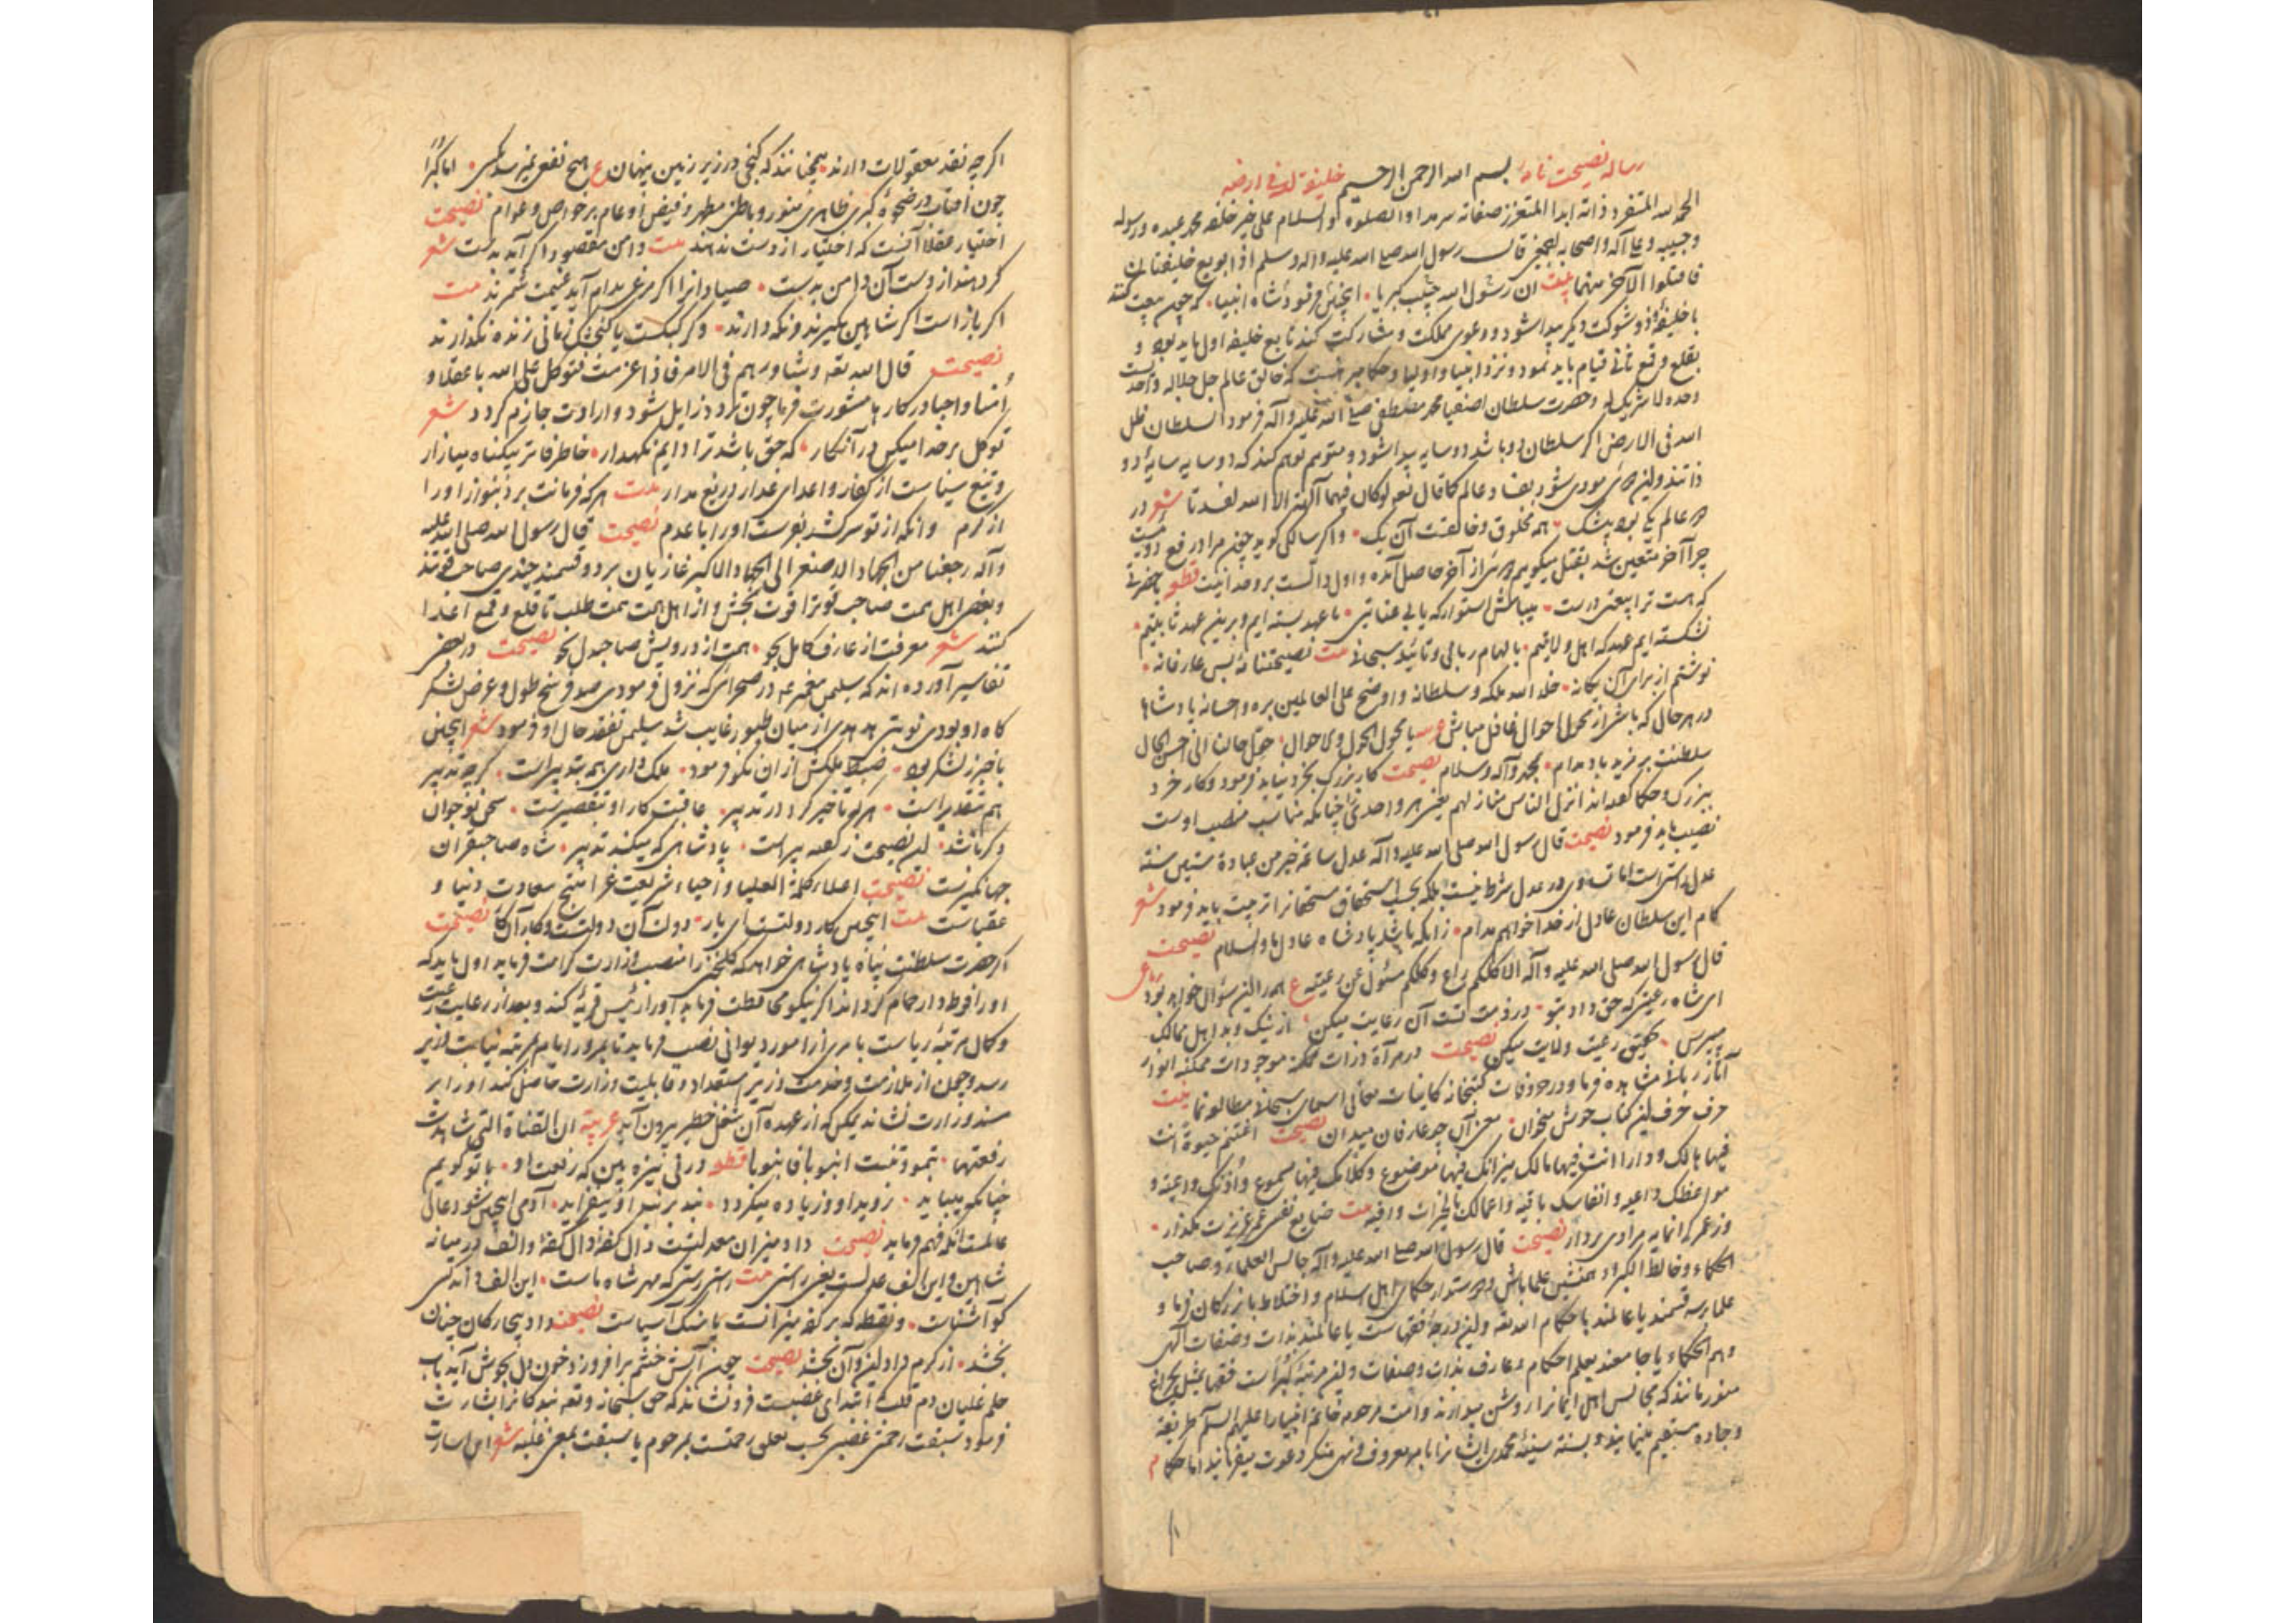 رساله نصیحت نامه بسم الله الرحمن الرحیم خلیفة الله فی ارضه
الحمد لله المتفرد ذاته ابدا المتعزز صفاته سرمدا والصلوة والسلام علی خیر خلقه محمد عبده ورسوله
وحبیبه وعلی آله واصحابه اجمعین قال رسول الله صلی الله علیه وآله وسلم اذا بویع خلیفتان
فاقتلوا الآخر منهما بیت ان رسول الله حبیب کبریا اینچنین فرمود شاه انبیا که چون بیعت کنند
با خلیفه ذو شوکت دیگر پیدا شود ودعوی مملکت ومشارکت کند تابع خلیفه اول باید بود و
بقلع وقمع ثانی قیام باید نمود ونزد انبیا واولیا وحکما مبرهنست که خالق عالم جل جلاله واحدست
وحده لا شریک له وحضرت سلطان اصفیا محمد مصطفی صلی الله علیه وآله فرمود السلطان ظل
الله فی الارض اگر سلطان دو باشد دو سایه پیدا شود ومتوهم توهم کند که دو سایه سایه دو
ذاتند واین مودی شود بفساد عالم کما قال تعالی لو کان فیهما آلهة الا الله لفسدتا شعر در
عالم یکی بود بیشک همه مخلوق وخالقت آن یک واگر سالکی گوید
چرا آخر متعین شد بقتل میگویم از آخر حاصل آمده واول دالست بر وحدانیت قطعه
که هست ترا بیعتی درست میباش استوار که یابی عنایتی ما عهد بسته ایم وبرین عهد ثابتیم
نشکسته ایم عهد که اهل ولایتیم بالهام ربانی وتائید سبحانی بیت نصیحتنامه بس عارفانه
نوشتم از برای آن یگانه خلد الله ملکه وسلطانه واوضح علی العالمین بره واحسانه پادشاها
در هر حال که باشی از تحول احوال غافل مباش ع یا محول الحول والاحوال حول حالنا الی احسن الحال
سلطنت بر مزید باد مدام بمحمد وآله وسلام نصیحت کار بزرگ بخرد نباید فرمود وکار خرد
ببزرگ وحکما گفته اند انزل الناس منازلهم یعنی هر واحدی را چنانکه مناسب منصب اوست
نصیب باید فرمود نصیحت قال رسول الله صلی الله علیه وآله عدل ساعة خیر من عبادة ستین سنة
عدل راستی است اما تساوی در عدل شرط نیست بلکه بحسب استحقاق مستحقانرا تربیت باید فرمود شعر
کام این سلطان عادل از خدا خواهم مدام زانکه باشد پادشاه عادل ما والسلام نصیحت
قال رسول الله صلی الله علیه وآله الا کلکم راع وکلکم مسئول عن رعیته ع همه را این سؤال خواهد بود
ای شاه رعیتی که حق داد بتو در ذمت تست آن رعایت میکن از نیک وبد اهل ممالک
میپرس تحقیق رعیت ولایت میکن نصیحت در مرآة ذرات ممکنه موجودات ممکنه انوار
آثار ربانی مشاهده فرما ودر حروفات کتبخانه کاینات معانی اسمای سبحانی مطالعه نما بیت
حرف حرف این کتاب خوش بخوان معنی آن جو عارفان میدان نصیحت اغتنم حیوة انت
فیها مالک ودارا انت فیها مالک میزانک فیها موضوع وکلامک فیها مسموع واذنک واعیة و
مواعظک داعیة وانفاسک باقیة واعمالک بالخیرات وافیة بیت ضایع نفسی عمر عزیزت مگذار
وز عمر گرانمایه مرادی بردار نصیحت قال رسول الله صلی الله علیه وآله جالس العلماء وصاحب
الحکماء وخالط الکبراء همنشین علما باش ودستور حکمای اهل اسلام واختلاط با بزرگان فرما و
علما سه قسمند یا عالمند باحکام الله تعالی واین درجه فقهاست یا عالمند بذات وصفات الهی
وهم الحکماء یا جامعند بعلم احکام وعارف بذات وصفات واین مرتبه کبراست فقها بمثل چراغ
منور مانند که مجالس اهل ایمانرا روشن میدارند وامت مرحومه خاتم انبیا را علیهم السلام طریقه
وجاده مستقیم مینمایند وبسنت سنیه محمدی ایشانرا بامر معروف ونهی منکر دعوت میفرمایند اما حکما
اگرچه نقد معقولات دارند همچنانند که گنجی در زیر زمین پنهان ع هیچ نفعی نمیرسد بکسی اما کبرا
چون آفتاب در ضحوه کبری ظاهری منور وباطنی مطهر وفیض او عام بر خواص وعوام نصیحت
اختیار عقلا آنست که اختیار از دست ندهند بیت دامن مقصود اگر آید بدست شعر
کردهند از دست آن دامن بدست صیادانرا اگر مرغی بدام آید غنیمت شمرند بیت
اگر باز است اگر شاهین بگیرند ونگه دارند وگر کبکست یا گنجشک زمانی زنده نگذارند
نصیحت قال الله تعالی وشاورهم فی الامر فاذا عزمت فتوکل علی الله با عقلا و
امنا واحبا در کارها مشورت فرما چون تردد زایل شود وارادت جازم گردد شعر
توکل بر خدا میکن در آنکار که حق باشد ترا دایم نگهدار خاطر فاتر بیگناه میازار
وتیغ سیاست از کفار واعدای غدار دریغ مدار بیت هر که فرمانت برد بنواز او را
از کرم وانکه از تو سرکشد بفرست او را با عدم نصیحت قال رسول الله صلی الله علیه
وآله رجعنا من الجهاد الاصغر الی الجهاد الاکبر غازیان بر دو قسمند چندی صاحب قوتند
وبعضی اهل همت صاحب قوترا قوت بخش واز اهل همت همت طلب تا قلع وقمع اعدا
کنند شعر معرفت از عارف کامل بجو همت از درویش صاحبدل بجو نصیحت در بعضی
تفاسیر آورده اند که سلیمن پیغمبر در صحرائی که نزول فرمودی صد فرسخ طول وعرض لشکر
گاه او بودی نوبتی هدهدی از میان طیور غایب شد سلیمن تفقد حال او فرمود شعر اینچنین
باخبر ز لشکر بود ضبط ملکش از ان نکو فرمود ملک داری همه بتدبیر است گرچه تدبیر
هم بتقدیر است هر که تاخیر کرد در تدبیر عاقبت کار او بتقصیرست سخن نوجوان
دگر باشد این نصیحت ز گفته پیر است پادشاهی که میکند تدبیر شاه صاحبقران
جهانگیرست نصیحت اعلاء کلمة العلیا واحیاء شریعت غرا منتج سعادت دنیا و
عقباست بیت اینچنین کار دولتست ای یار دولت آن دولتست وکار آن کار نصیحت
اگر حضرت سلطنت پناه پادشاهی خواهد که شخصی را منصب وزارت کرامت فرماید اول باید که
او را فوطه دار حمام گرداند اگر نیکو محافظت فرماید او را رئیس قریه کند وبعد از رعایت رعیت
وکمال مرتبه ریاست بامری از امور دیوانی نصب فرماید تا بمرور ایام بمرتبه نیابت وزیر
رسد وچون از ملازمت وخدمت وزیر استعداد وقابلیت وزارت حاصل کند او را بر
مسند وزارت نشاند یمکن که از عهده آن شغل خطیر بیرون آید عربیة ان القناة التی شاهدت
رفعتها تنمو وتنبت انبوبا فانبوبا قطعه در نی نیزه بین که رفعت او با تو گویم
چنانکه میباید زوید او وزیاده میگردد بند بر بند او بیفزاید آدمی اینچنین شود عالی
عالمست آنکه فهم فرماید نصیحت داد ومیزان معدلتست دال کفه ودال کفه والف در میانه
شاهین واین الف عدلست یعنی راستی بیت راستی که مهر شاه ماست این الف داند کسی
کو آشناست ونقطه که بر کفه میزانست پاسنگ آسیاست نصیحت داد بیچارگان چنان
بخشد از کرم داد این وآن بخشد نصیحت چون آتش خشم برافروزد وخون دل بجوش آید بآب
حلم غلیان دم قلب واشتدای غضبت فرونشاند که حق سبحانه وتعالی بندگانرا بشارت
فرمود سبقت رحمتی غضبی بحسب تعلق رحمتست بمرحوم یا سبقت بمعنی غلبه شعر